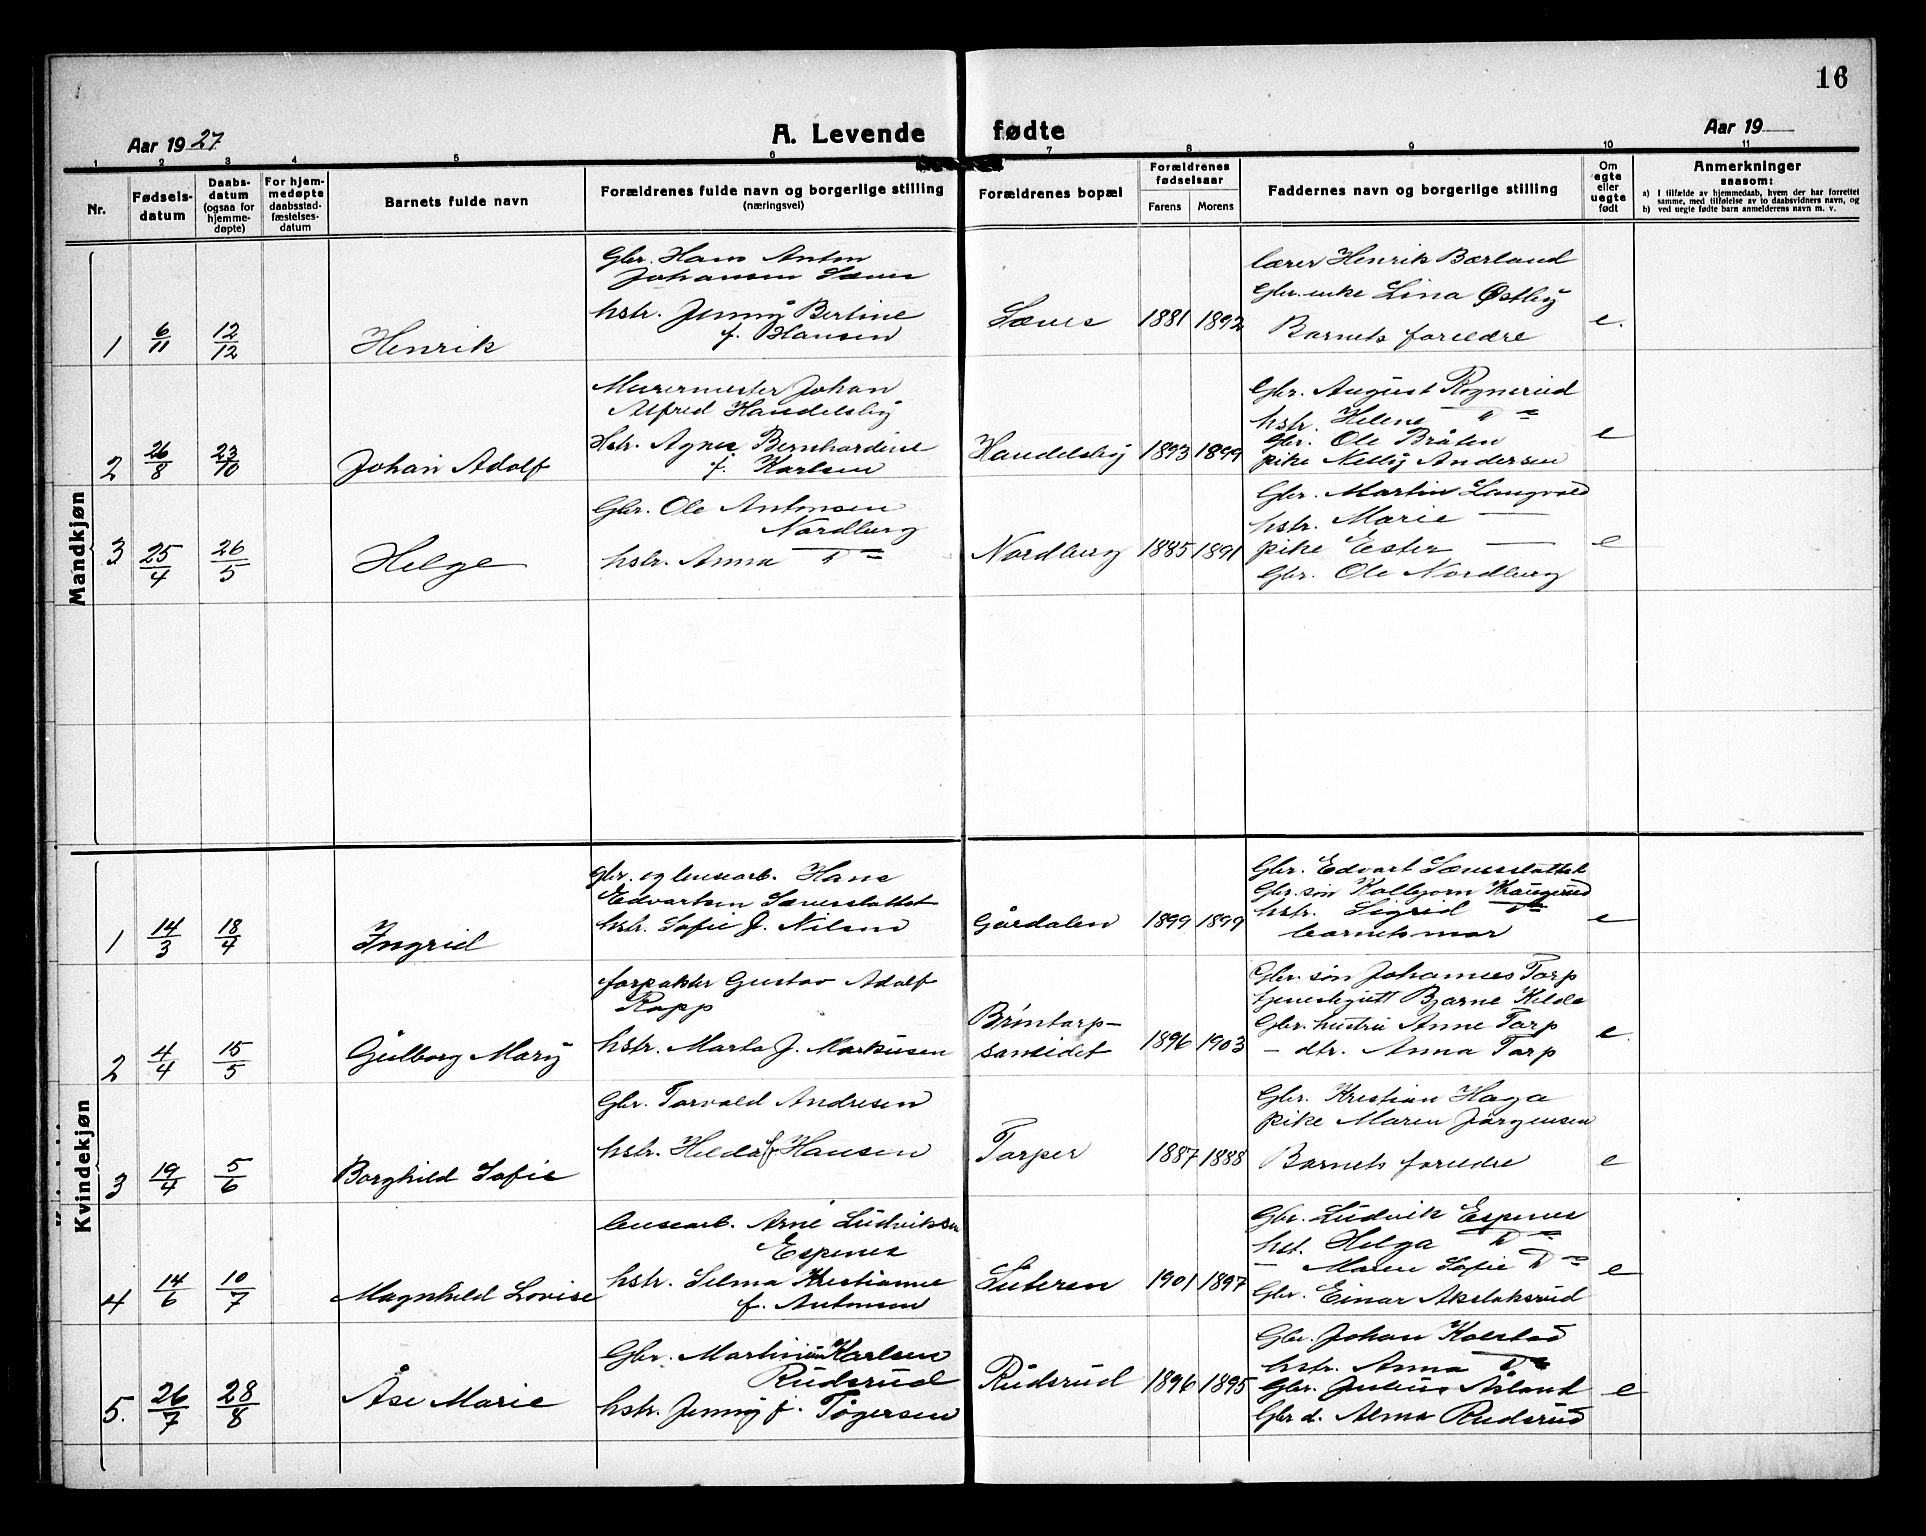 16
Aar 1927
A. Levende fødte
Aar 19
1 2 3 4 5 6 7 8 9 10 11
Nr.
Fødsels-
datum
Daabs-
datum
(ogsaa for
hjemme-
døpte)
For hjem-
medøpte
daabsstad-
fæstelses-
datum
Barnets fulde navn
Forældrenes fulde navn og borgerlige stilling
(næringsvei)
Forældrenes bopæl
Forældrenes
fødselsaar
Farens Morens
Faddernes navn og borgerlige stilling
Om
egte
eller
uegte
født
Anmerkninger
saasom:
a) I tilfælde av hjemmedaab, hvem der har forrettet
samme, med tilføielse av to daabsvidners navn, og
b) ved uegte fødte barn anmelderens navn m. v.
Mandkjøn
1 6/11 12/12 Henrik
Gbr. Hans Anton
Johansen Sæves
hstr. Jenny Bertine
f. Hansen
Sæves 1881 1892
lærer Henrik Børland
Gbr. enke Lina Østby
Barnets foreldre
e.
2 26/8 23/10 Johan Adolf
Murermester Johan
Alfred Handelsby
Hstr. Agnes Bernhardine
f. Karlsen
Handelsby 1893 1899
Gbr. August Rognerud
hstr. Helene " "
Gbr. Ole Bråten
pike Nelly Andersen
e
3 25/4 26/5 Helge
Gbr. Ole Antonsen
Nordberg
hstr. Anna " "
Nordberg 1885 1891
Gbr. Martin Langvold
hstr. Marie —
pike Ester —
Gbr. Ole Nordberg
e
Kvindekjøn
1 14/3 18/4 Ingrid
gbr. og brusearb. Hans
Edvartsen Sævesslottet
hstr. Sofie f. Nilsen
Gårdalen 1899 1899
Gbr. Edvart Sævesslottet
Gbr. søn Kolbjørn Haugerud
hstr. Sigrid " "
barnets mor
e
2 4/4 15/5 Gulborg Mary
forpakter Gustav Adolf
Rapp
hstr. Marta f. Markusen
Bröntorp-
samidet 1896 1903
Gbr. søn Johannes Torp
tjenestegutt Bjarne Kilde
Gbr. hustru Anne Torp
— dtr. Anna Torp
e.
3 19/4 5/6 Borghild Sofie
Gbr. Torvald Andresen
hstr. Hilda f. Hansen
Torper 1887 1888
Gbr. Kristian Haga
pike Maren Jørgensen
Barnets foreldre
e
4 14/6 10/7 Magnhild Lovise
brusearb. Arne Ludviksen
Espenes
hstr. Selma Kristianne
f. Antonsen
Suteren 1901 1897
Gbr. Ludvik Espenes
hst. Helga " "
— Maren Sofie " "
Gbr. Einar Akslaksrud
e
5. 26/7 28/8 Åse Marie
Gbr. Martinius Karlsen
Rudsrud
hstr. Jenny f. Tøgersen
Rudsrud 1896 1895
Gbr. Johan Kolstad
hstr. Anna " "
Gbr. Julius Åsland
Gbr d. Alma Rudsrud
e